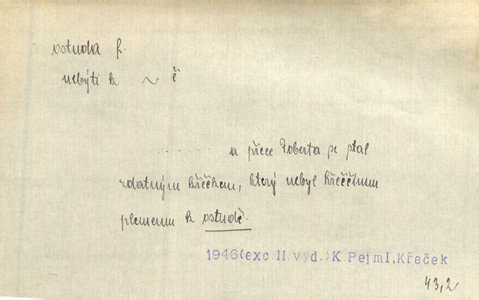 ostuda f.
nebýti k ~ ě
........ a přece Roberta se stal
zdatným křečkem, který nebyl křeččímu
plemenu k ostudě.
1946(exc II.vyd.) K Pejml, Křeček
43,2